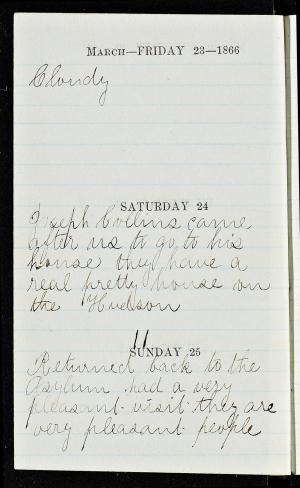 March—FRIDAY 23—1866
Cloudy
SATURDAY 24
Joseph Collins came
after us to go to his
house they have a
real pretty house on
the Hudson
11
SUNDAY 25
Returned back to the
Asylum had a very
pleasant visit they are
very pleasant people